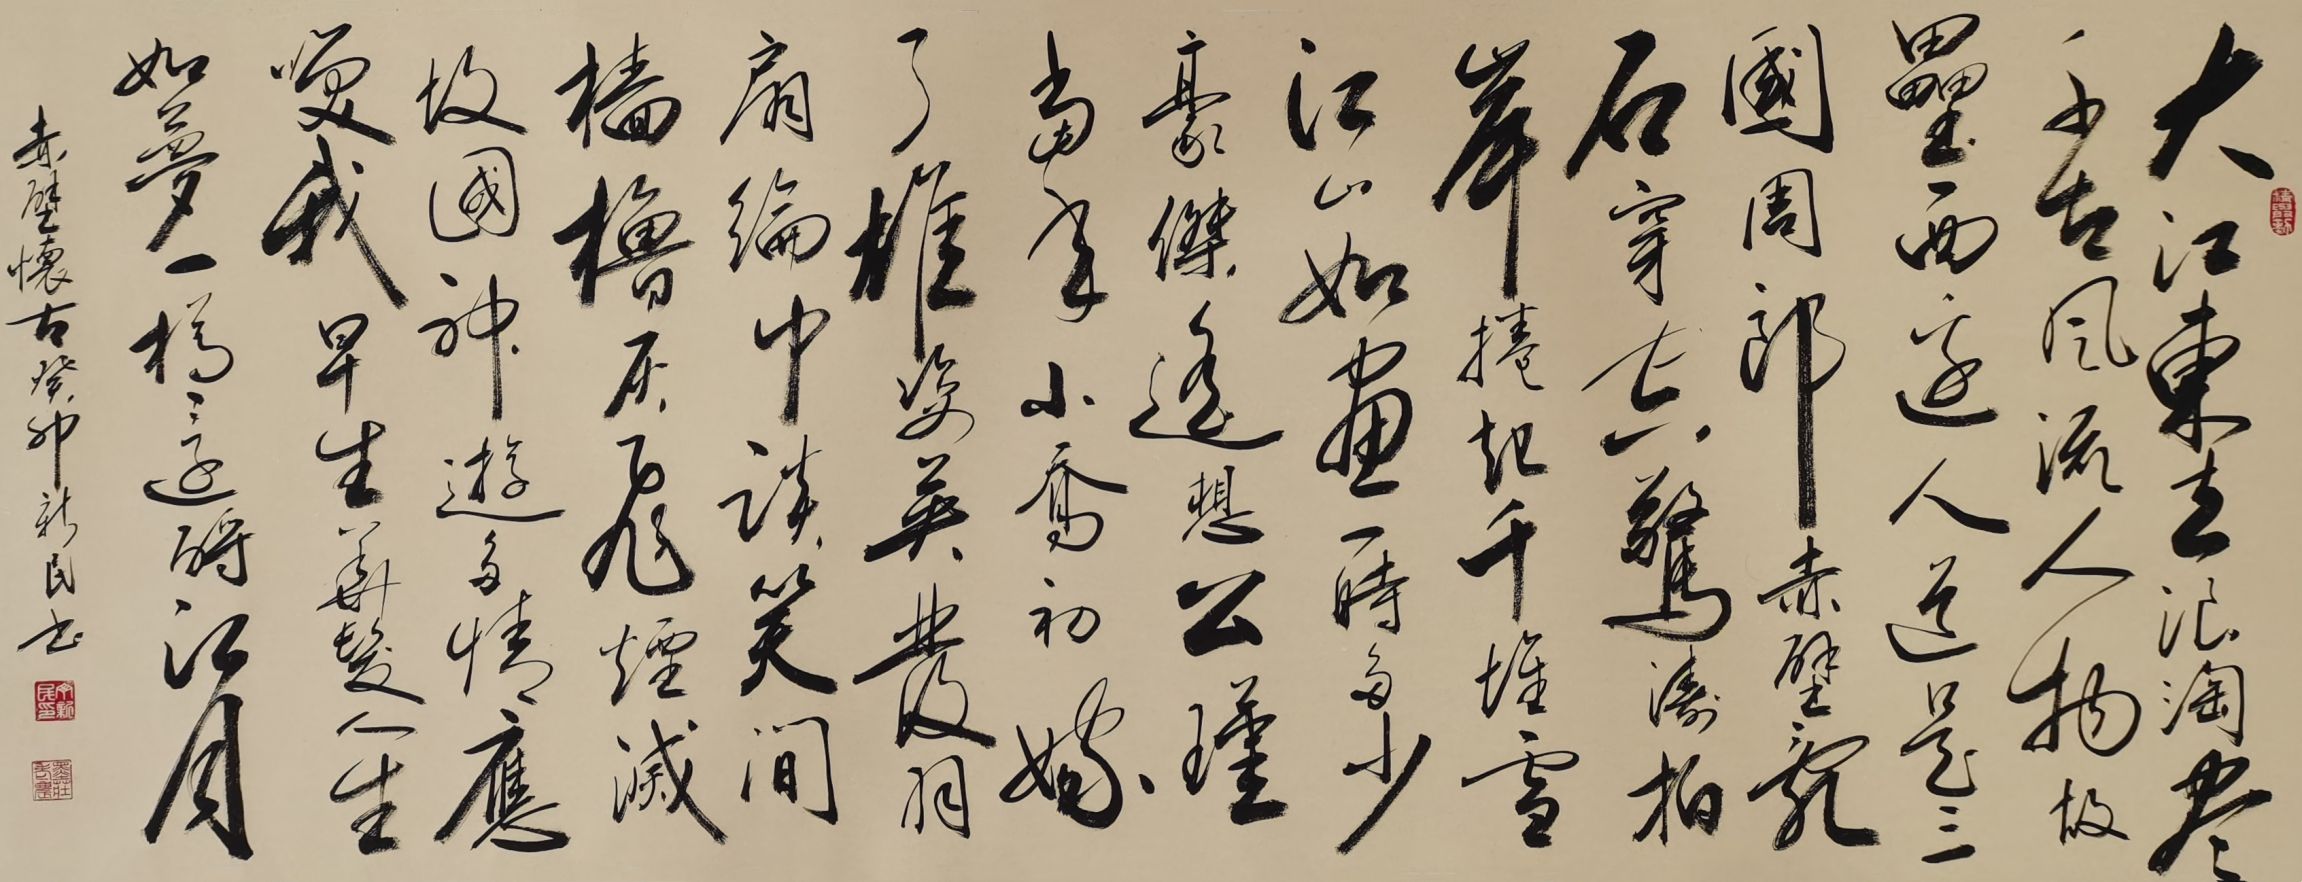 大江東去浪淘盡
千古風流人物故
壘西邊人道是三
國周郎赤壁亂
石穿空驚濤拍
岸捲起千堆雪
江山如畫一時多少
豪傑遙想公瑾
當年小喬初嫁
了雄姿英發羽
扇綸巾談笑間
檣櫓灰飛煙滅
故國神遊多情應
笑我早生華髮人生
如夢一樽還酹江月
赤壁懷古癸卯新民书